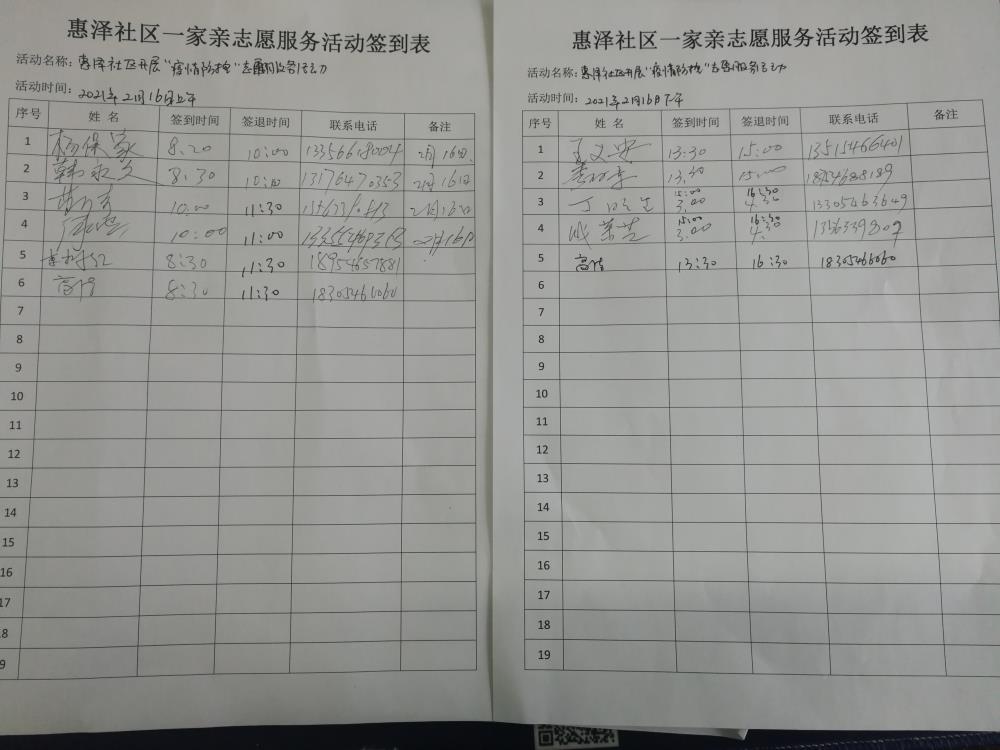 惠泽社区一家亲志愿服务活动签到表
活动名称：惠泽社区开展"疫情防控"志愿服务活动
活动时间：2021年2月16日上午
序号 姓 名 签到时间 签退时间 联系电话 备注
1 杨保家 8:20 10:00 13356618004 2月16日
2 韩永久 8:30 10:00 13176470353 2月16日
3 10:00 11:30 2月16日
4 10:00 11:00 2月16日
5 8:30 11:30 18954657881
6 高倩 8:30 11:30 18305466060
7
8
9
10
11
12
13
14
15
16
17
18
19
惠泽社区一家亲志愿服务活动签到表
活动名称：惠泽社区开展"疫情防控"志愿服务活动
活动时间：2021年2月16日下午
序号 姓 名 签到时间 签退时间 联系电话 备注
1 13:30 15:00 13515466401
2 13:30 15:00 18954688189
3 15:00 3:00 16:30 4:30 13305463649
4 15:00 3:00 16:30 4:30
5 高倩 13:30 16:30 18305466060
6
7
8
9
10
11
12
13
14
15
16
17
18
19